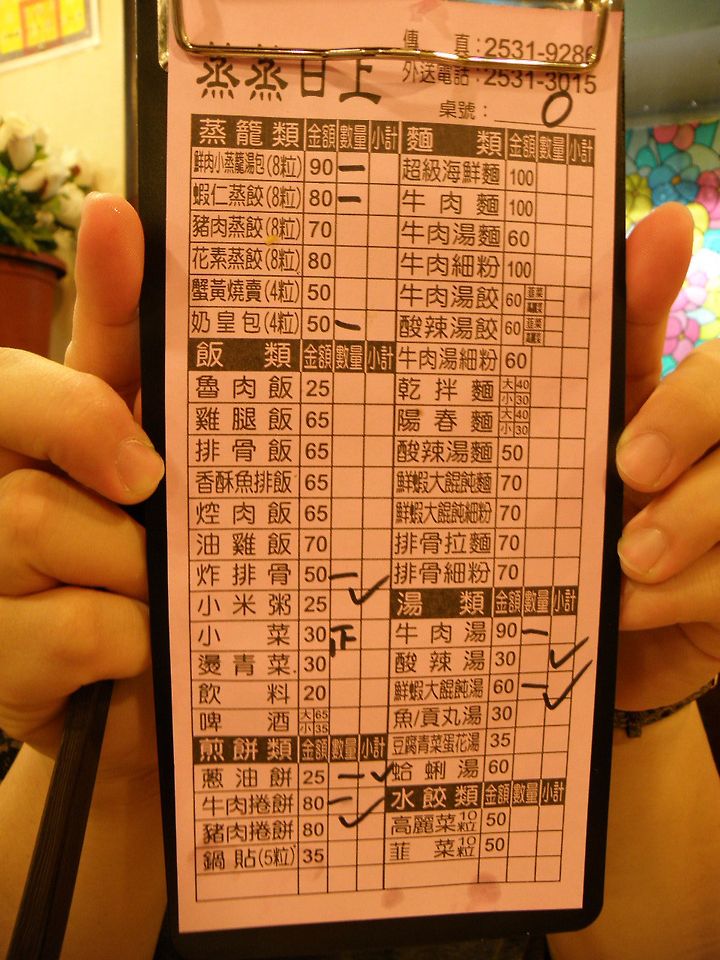 傳真:2531-9286
蒸蒸日上
外送電話:2531-3015
桌號: 0
蒸籠類 金額 數量 小計
鮮肉小蒸籠湯包(8粒) 90 一
蝦仁蒸餃(8粒) 80 一
豬肉蒸餃(8粒) 70
花素蒸餃(8粒) 80
蟹黃燒賣(4粒) 50
奶皇包(4粒) 50 一
飯類 金額 數量 小計
魯肉飯 25
雞腿飯 65
排骨飯 65
香酥魚排飯 65
焢肉飯 65
油雞飯 70
炸排骨 50 一
小米粥 25
小菜 30 正
燙青菜 30
飲料 20
啤酒 大65 小35
煎餅類 金額 數量 小計
蔥油餅 25 一
牛肉捲餅 80 一
豬肉捲餅 80
鍋貼(5粒) 35
麵類 金額 數量 小計
超級海鮮麵 100
牛肉麵 100
牛肉湯麵 60
牛肉細粉 100
牛肉湯餃 60 韮菜 高麗菜
酸辣湯餃 60 韮菜 高麗菜
牛肉湯細粉 60
乾拌麵 大40 小30
陽春麵 大40 小30
酸辣湯麵 50
鮮蝦大餛飩麵 70
鮮蝦大餛飩細粉 70
排骨拉麵 70
排骨細粉 70
湯類 金額 數量 小計
牛肉湯 90 一
酸辣湯 30
鮮蝦大餛飩湯 60 一
魚/貢丸湯 30
豆腐青菜蛋花湯 35
蛤蜊湯 60
水餃類 金額 數量 小計
高麗菜10粒 50
韮菜10粒 50